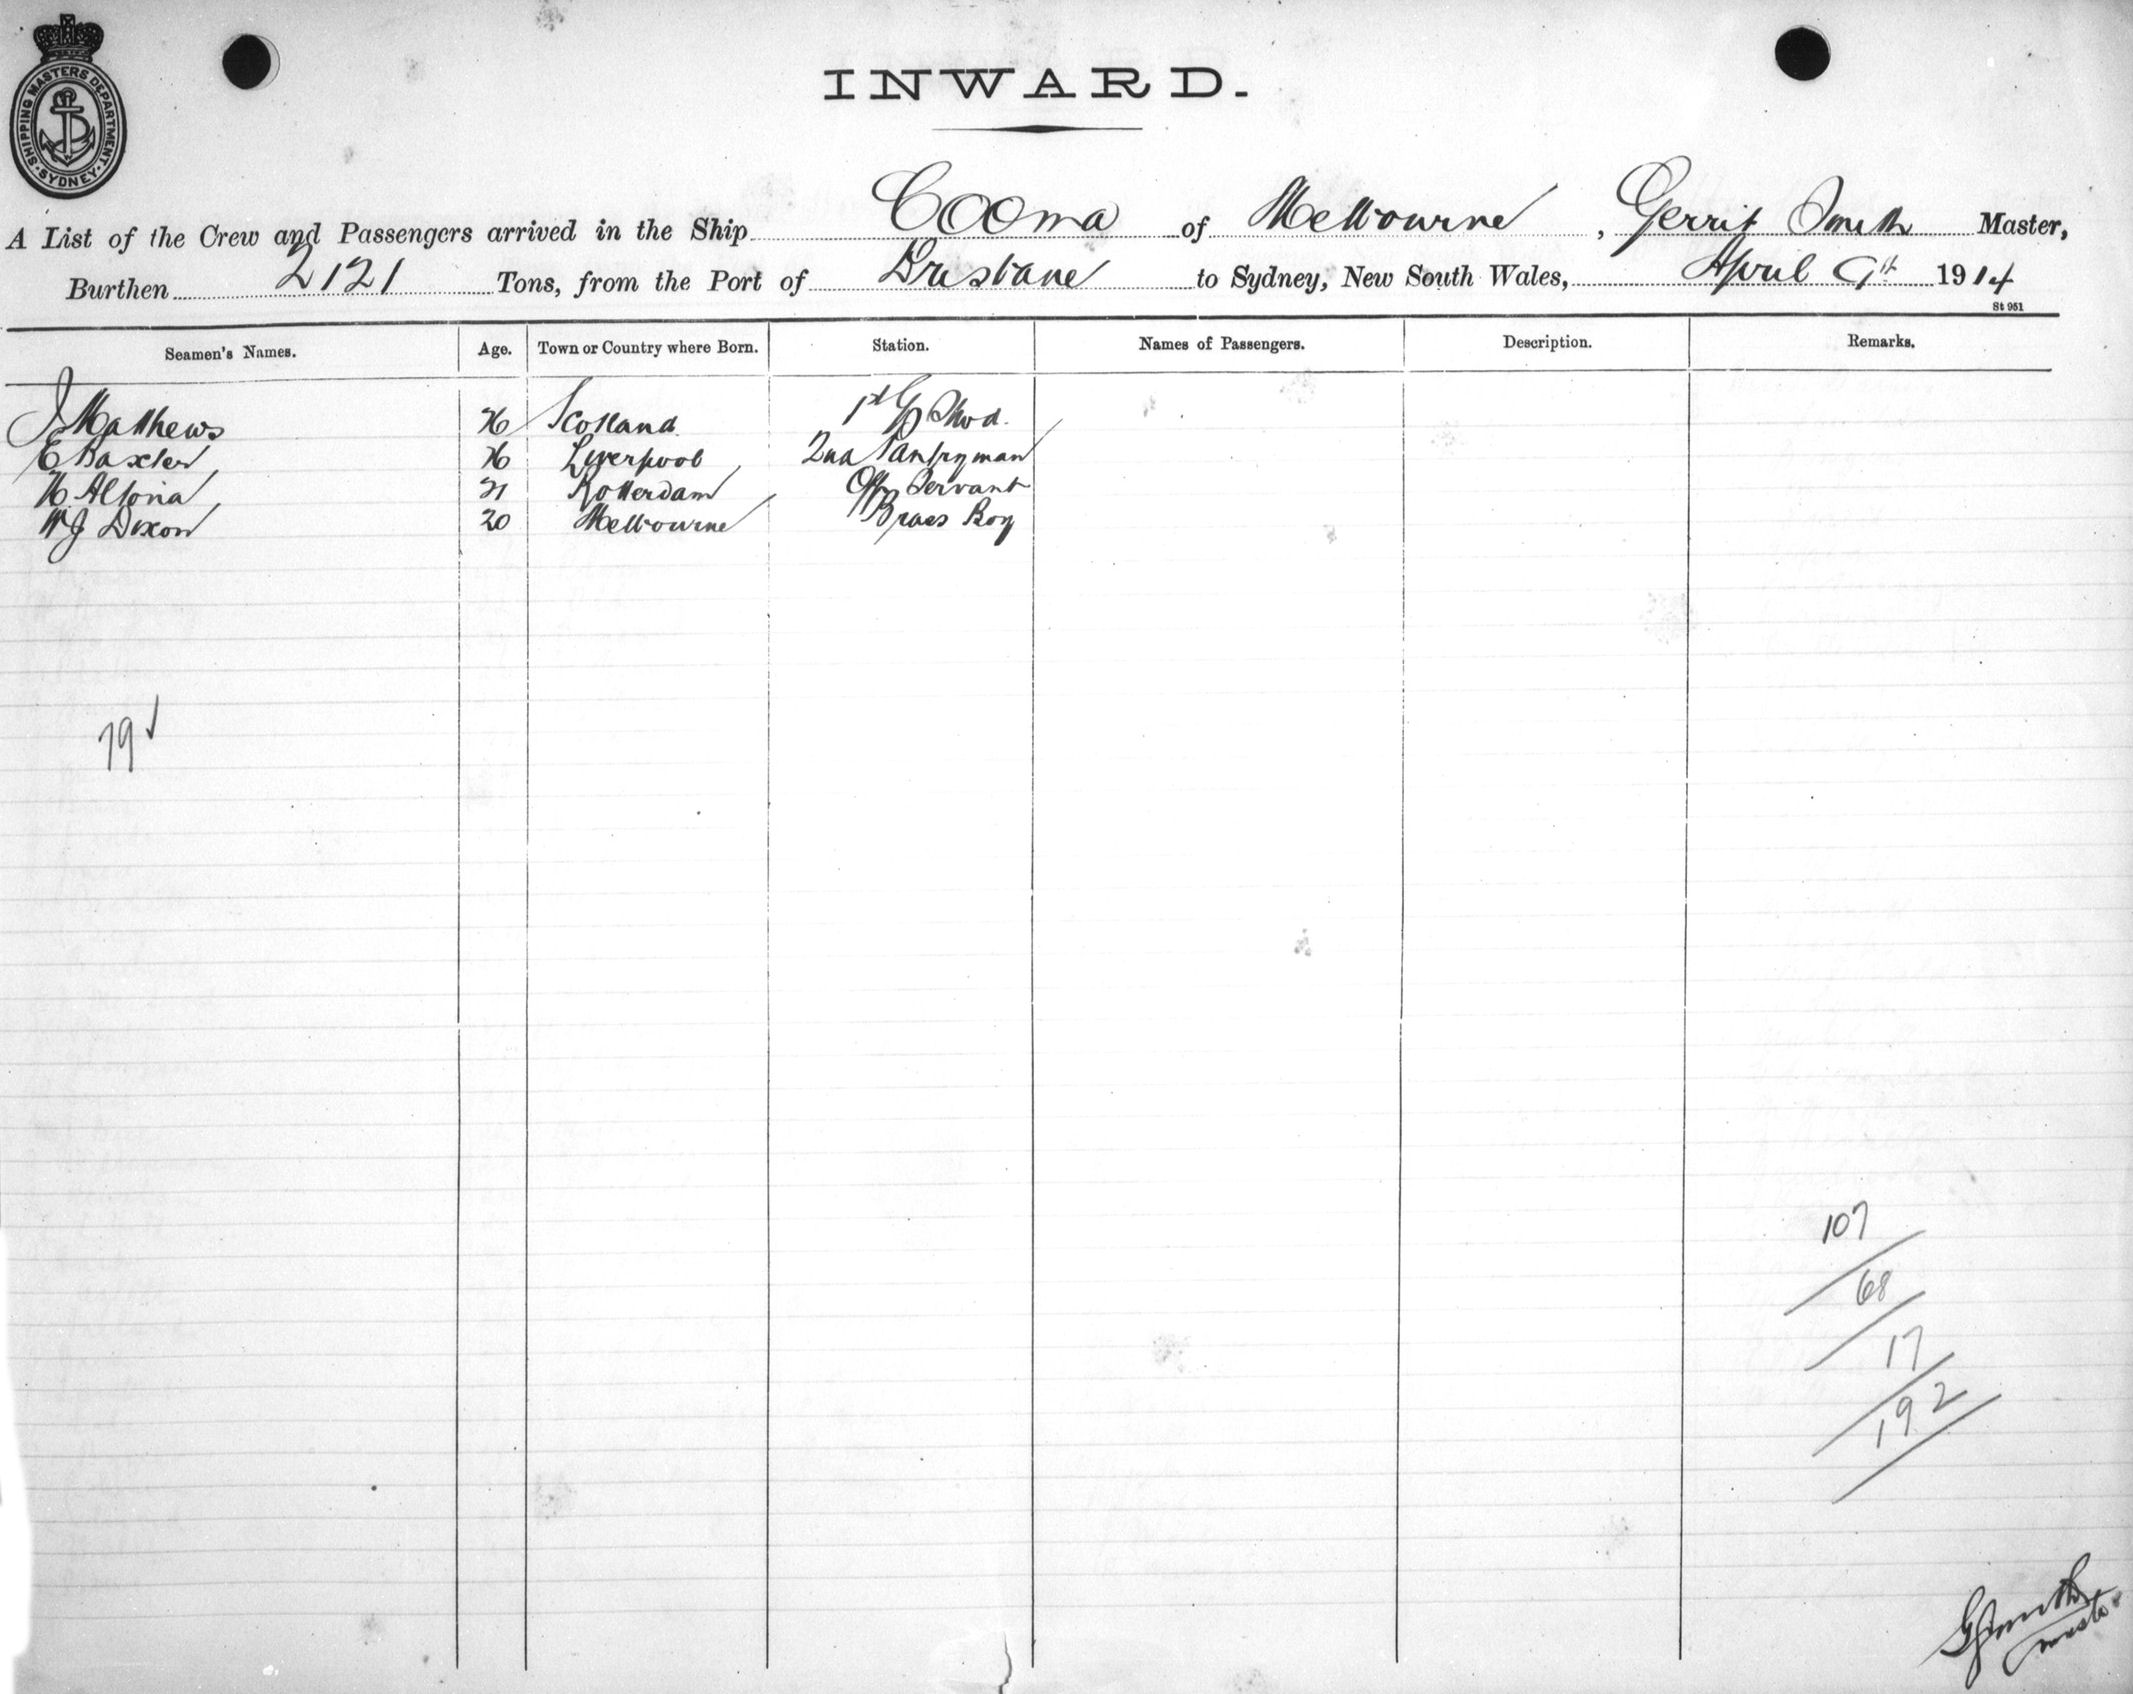 SHIPPING MASTERS DEPARTMENT
SYDNEY
INWARD.
A List of the Crew and Passengers arrived in the Ship Cooma of Melbourne, Gerrit Smith Master,
Burthen 2121 Tons, from the Port of Brisbane to Sydney, New South Wales, April 9th 1914
St 951
Seamen's Names. Age. Town or Country where Born. Station. Names of Passengers. Description. Remarks.
J Matthews 26 Scotland 1st
E Baxter 26 Liverpool 2nd Pantryman
H Altona 21 Rotterdam Offrs Servant
W J Dixon 20 Melbourne Brass Boy
79
107
68
17
192
G Smith
master